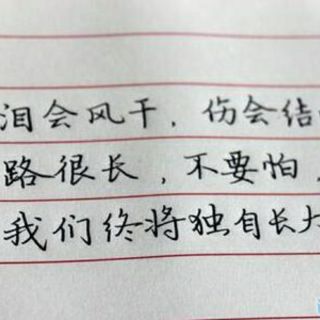 泪会风干，伤会结
路很长，不要怕，
我们终将独自长大